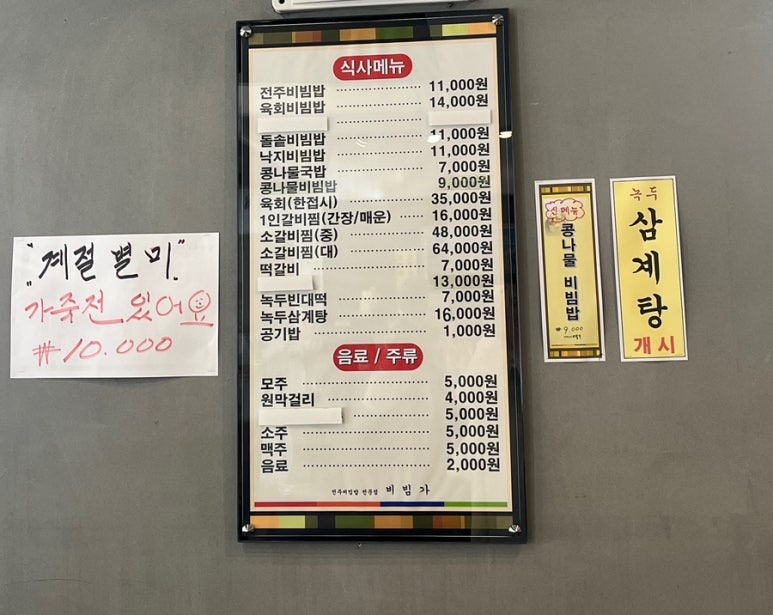 "계절 별미"
가죽전 있어요
₩10.000
식사메뉴
전주비빔밥 11,000원
육회비빔밥 14,000원
돌솥비빔밥 11,000원
낙지비빔밥 11,000원
콩나물국밥 7,000원
콩나물비빔밥 9,000원
육회(한접시) 35,000원
1인갈비찜(간장/매운) 16,000원
소갈비찜(중) 48,000원
소갈비찜(대) 64,000원
떡갈비 7,000원
13,000원
녹두빈대떡 7,000원
녹두삼계탕 16,000원
공기밥 1,000원
음료 / 주류
모주 5,000원
원막걸리 4,000원
5,000원
소주 5,000원
맥주 5,000원
음료 2,000원
전주비빔밥 전문점 비빔가
신메뉴
콩나물 비빔밥
₩9,000
녹두
삼계탕
개시